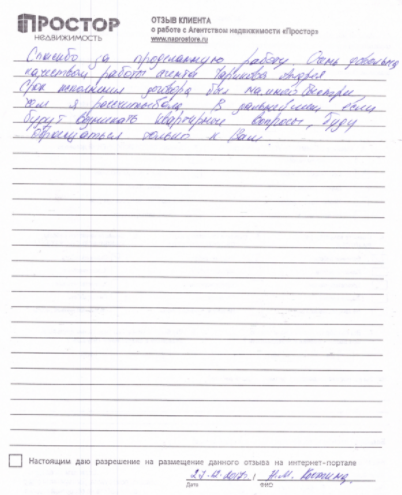 ПРОСТОР
НЕДВИЖИМОСТЬ
ОТЗЫВ КЛИЕНТА
о работе с Агентством недвижимости «Простор»
www.naprostore.ru
Спасибо за проделанную работу. Очень довольна
качеством работы агента Андрея
Срок исполнения договора был намного быстрей,
чем я рассчитывала. В дальнейшем, если
будут возникать квартирные вопросы, буду
обращаться только к Вам
Настоящим даю разрешение на размещение данного отзыва на интернет-портале
Дата
ФИО